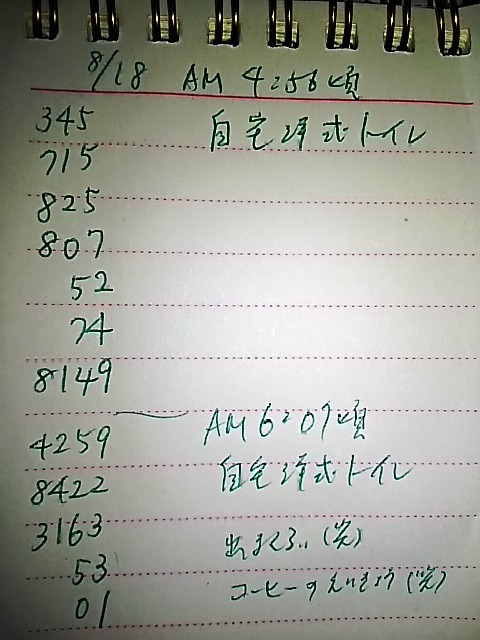 8/18 AM 4:56頃
345 自宅洋式トイレ
715
825
807
52
74
8149
AM 6:07頃
4259
8422 自宅洋式トイレ
3163
出まくる、(笑)
53
コーヒーのえいきょう(笑)
01